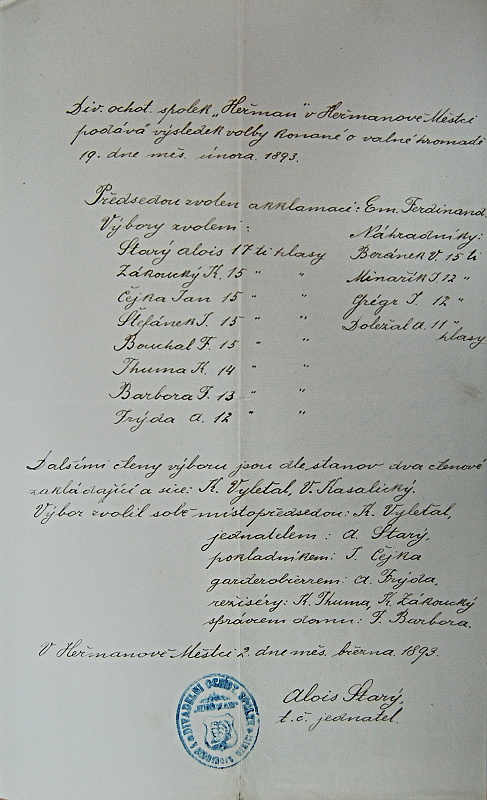 Div. ochot. spolek „Heřman" v Heřmanově Městci
podává výsledek volby konané o valné hromadě
19. dne měs. února 1893.
Předsedou zvolen akklamací: Em. Ferdinand,
Výbory zvoleni:
Starý alois 17 ti hlasy
Zákoucký K. 15 " "
Čejka Jan 15 " "
Štefánek J. 15 " "
Bouchal F. 15 " "
Thuma K. 14 " "
Barbora F. 13 " "
Frýda A. 12 " "
Náhradníky:
Beránek V. 15 ti
Minařík J. 12 "
Grégr J. 12 "
Doležal A. 11 "
hlasy
Dalšími členy výboru jsou dle stanov dva členové
zakládající a sice: K. Vyletal, V. Kasalický.
Výbor zvolil sobě místopředsedou: K. Vyletal,
jednatelem: A. Starý,
pokladníkem: J. Čejka
garderobierrem: A. Frýda,
režiséry: K. Thuma, K. Zákoucký
správcem domu: F. Barbora.
V Heřmanově Městci 2. dne měs. března 1893.
Alois Starý,
t. č. jednatel.
DIVADELNÍ OCHOT. SPOLEK